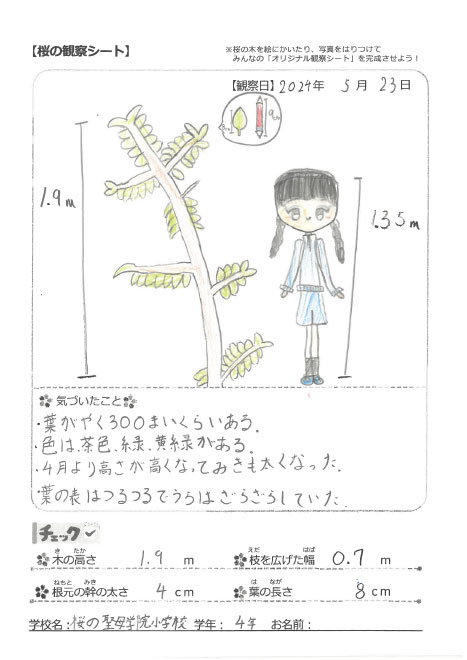 【桜の観察シート】
※桜の木を絵にかいたり、写真をはりつけて
みんなの「オリジナル観察シート」を完成させよう！
【観察日】2024年 5月 23日
1.9m
1.35m
気づいたこと
・葉がやく300まいくらいあう。
・色は、茶色、緑、黄緑がある。
・4月より高さが高くなってみきも太くなった。
・葉の表はつるつるでうらはざらざらしていた。
チェック
木の高さ 1.9 m 枝を広げた幅 0.7 m
根元の幹の太さ 4 cm 葉の長さ 8 cm
学校名：桜の聖母学院小学校 学年：4年 お名前：